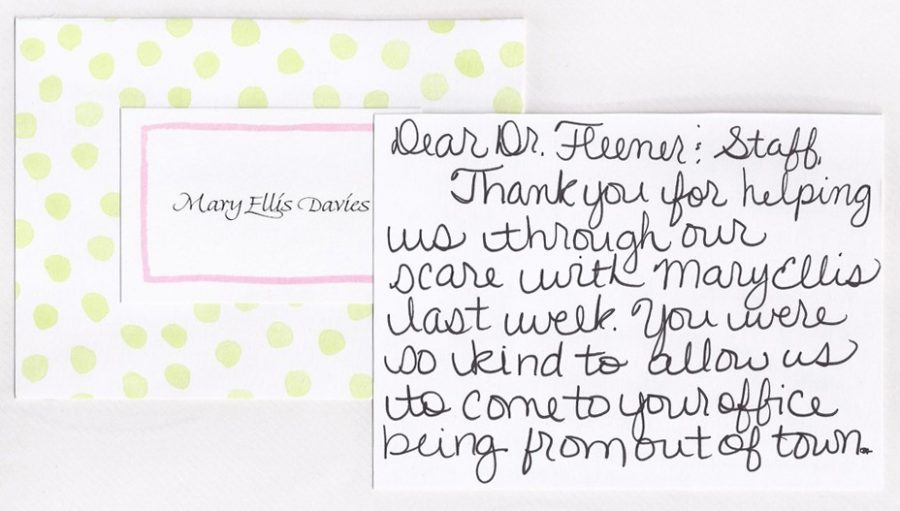 Mary Ellis Davies
Dear Dr. Fleener & Staff,
Thank you for helping
us through our
scare with Mary Ellis
last week. You were
so kind to allow us
to come to your office
being from out of town.